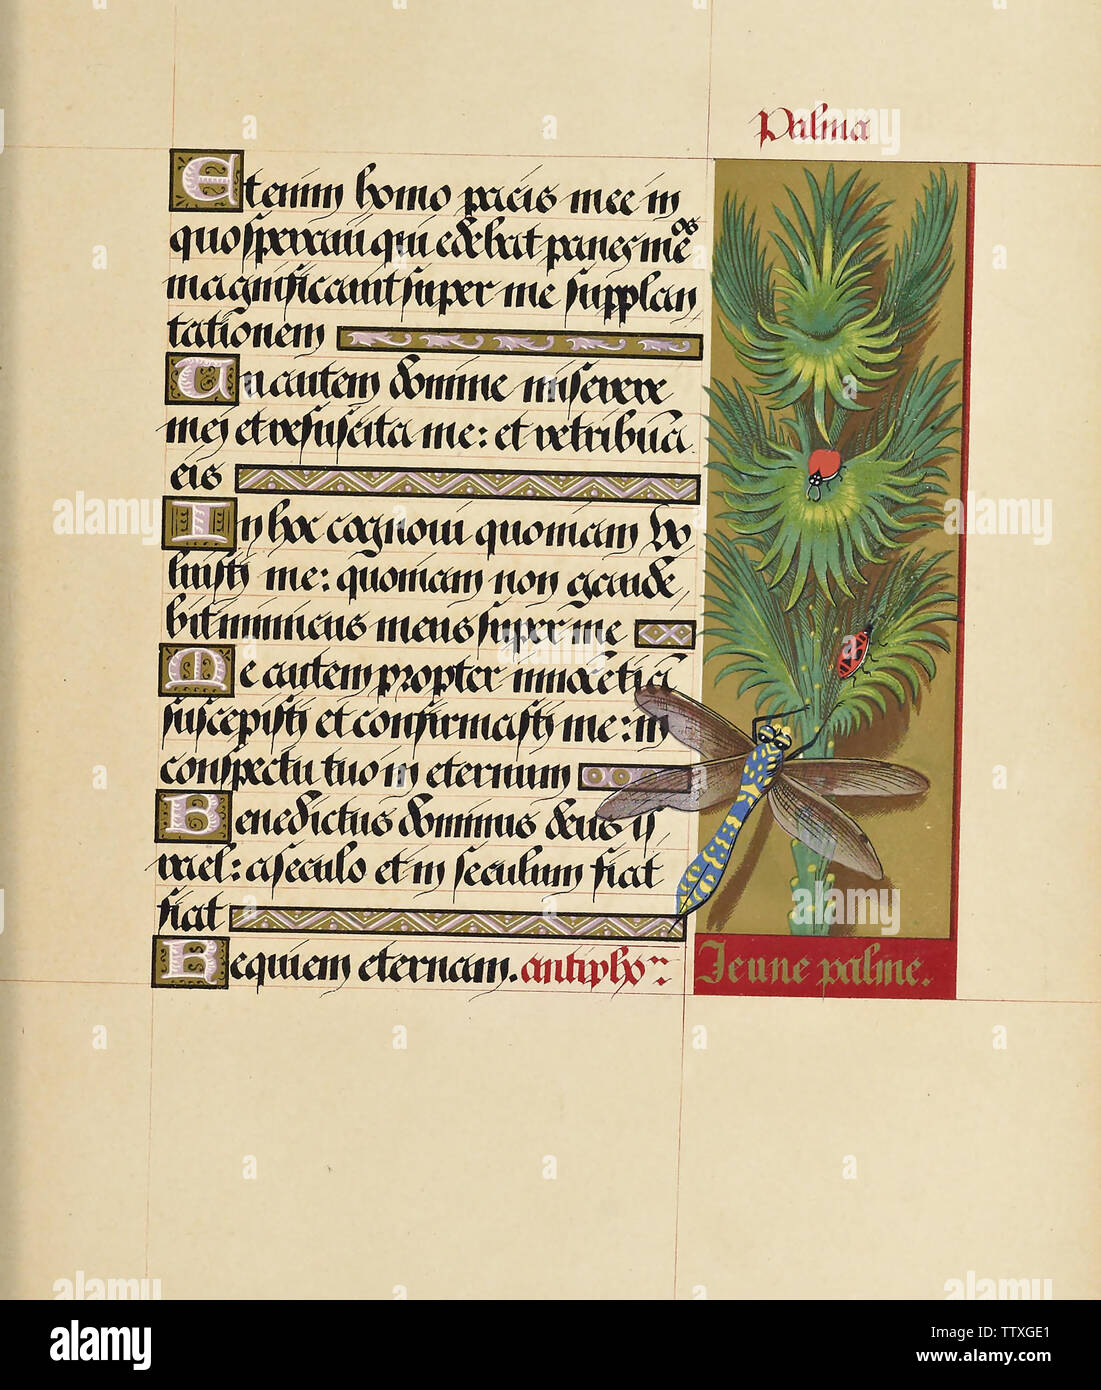 Palma
Etenim homo pacis mee in
quo speraui qui edebat panes meos
magnificauit super me supplan
tationem
Tu autem domine miserere
mei et resuscita me: et retribua
eis
In hoc cognoui quoniam vo
luisti me: quoniam non gaude
bit inimicus meus super me
Me autem propter innocētiā
suscepisti et confirmasti me: in
conspectu tuo in eternum
Benedictus dominus deus is
rael: a seculo et in seculum fiat
fiat
Requiem eternam. antipho
Jeune palme.
alamy
Image ID: TTXGE1
www.alamy.com